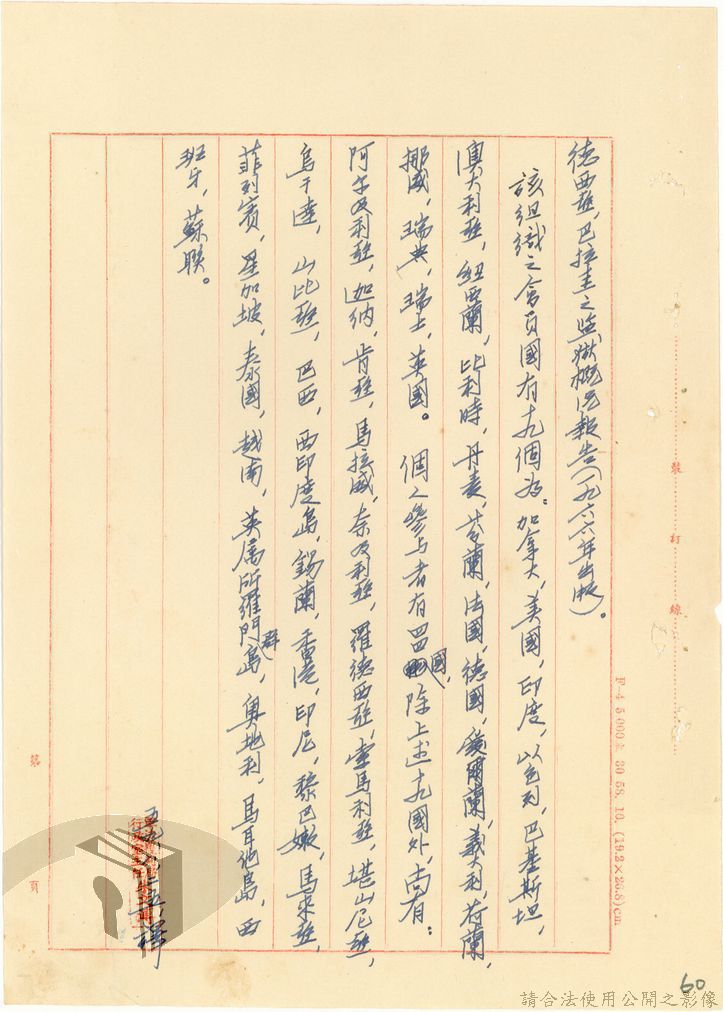 德西亞,巴拉圭之監獄概況報告(一九六六年出版)。
該組織之會員國有十九個為:加拿大,美國,印度,以色列,巴基斯坦,
澳大利亞,紐西蘭,比利時,丹麦,芬蘭,法國,德國,愛爾蘭,義大利,荷蘭,
挪威,瑞典,瑞士,英國。個人參与者有四四國,除上述十九國外,尚有:
阿尔及利亞,迦納,肯亞,馬拉威,奈及利亞,羅德西亞,索馬利亞,坦山尼亞,
烏干達,山比亞,巴西,西印度島,錫蘭,香港,印尼,黎巴嫩,馬來亞,
菲列賓,星加坡,泰國,越南,英属所羅門群島,奧地利,馬耳他島,西
班牙,蘇联。
裝 訂 線
第 頁
60
請合法使用公開之影像